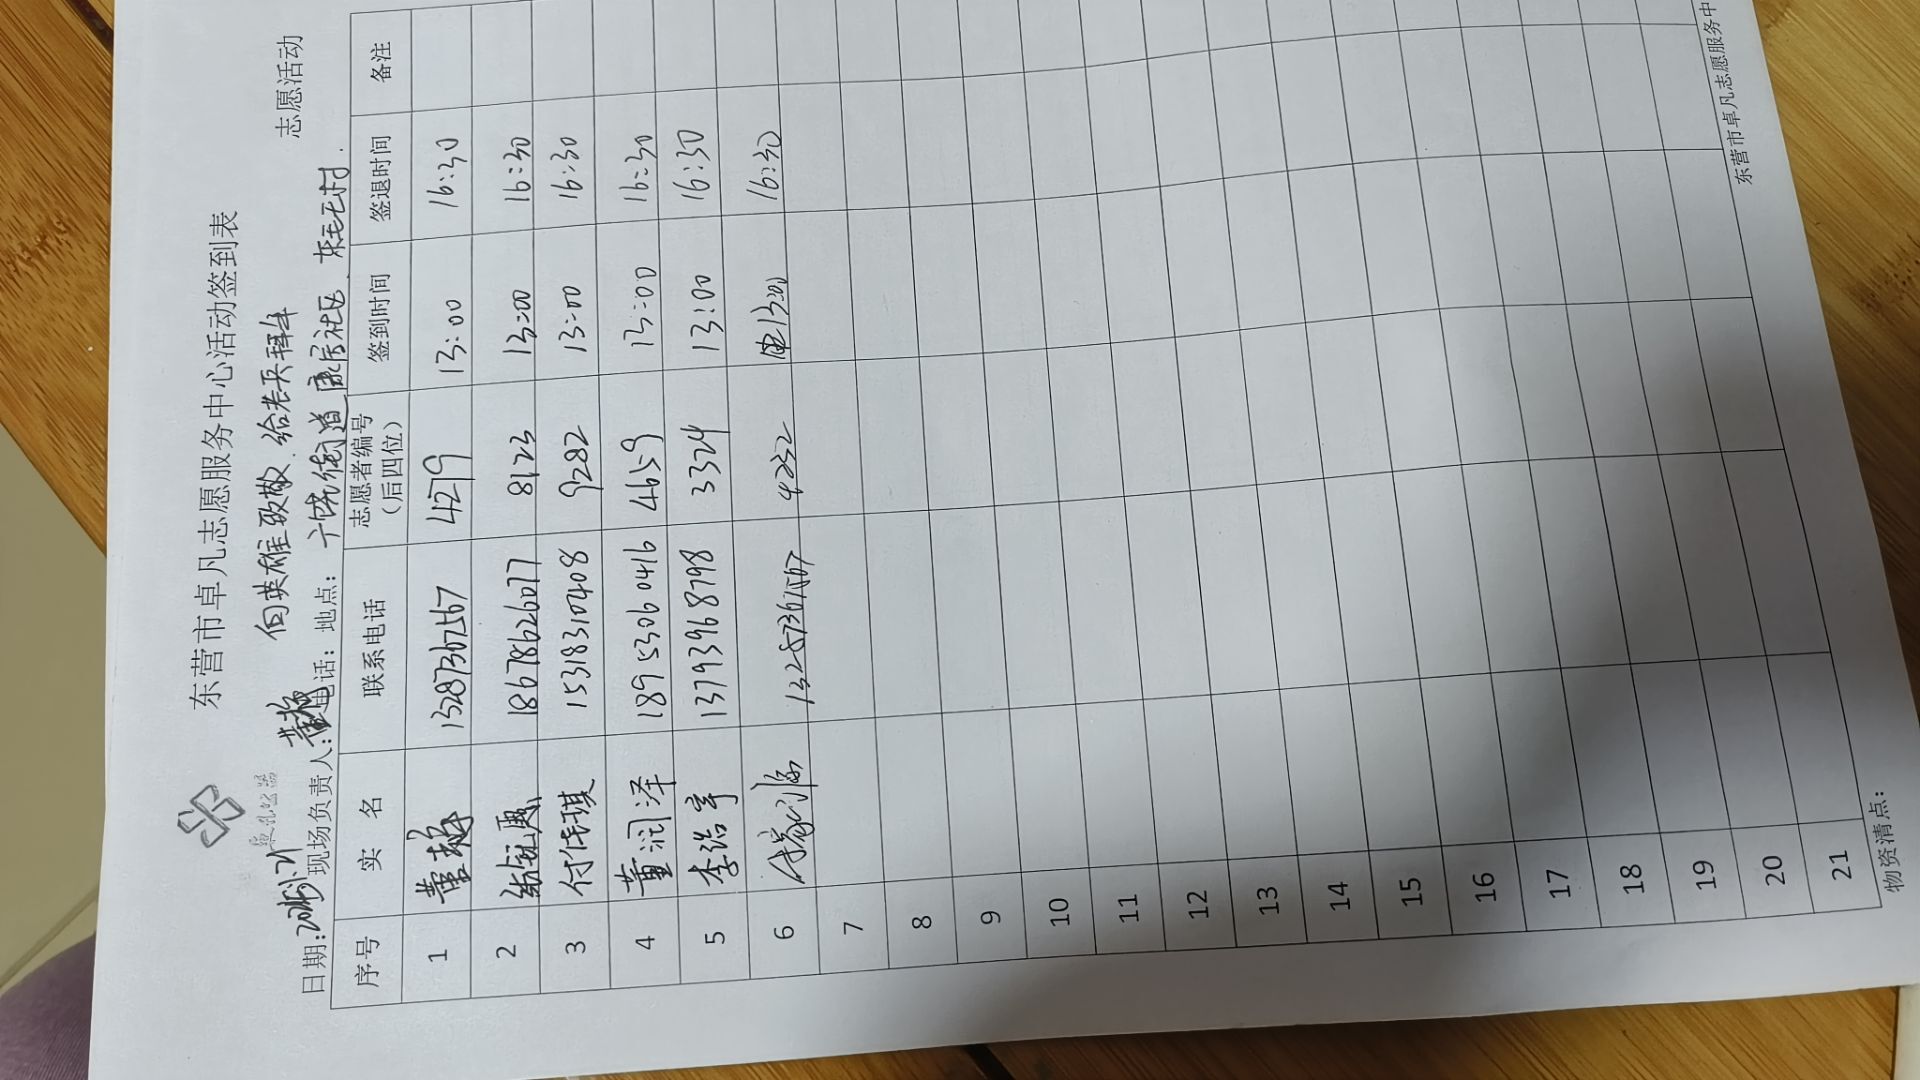 东营市卓凡志愿服务中心活动签到表
向英雄致敬、给老兵拜年 志愿活动
日期: 现场负责人: 电话: 地点: 街道康居社区、
序号 实 名 联系电话 志愿者编号（后四位） 签到时间 签退时间 备注
1 4279 13:00 16:30
2 18678626077 8123 13:00 16:30
3 付传琪 15318310408 9282 13:00 16:30
4 董润泽 18953060416 4659 13:00 16:30
5 李浩宇 13793968798 3324 13:00 16:30
6 4232 13:00 16:30
7
8
9
10
11
12
13
14
15
16
17
18
19
20
21
物资清点:
东营市卓凡志愿服务中